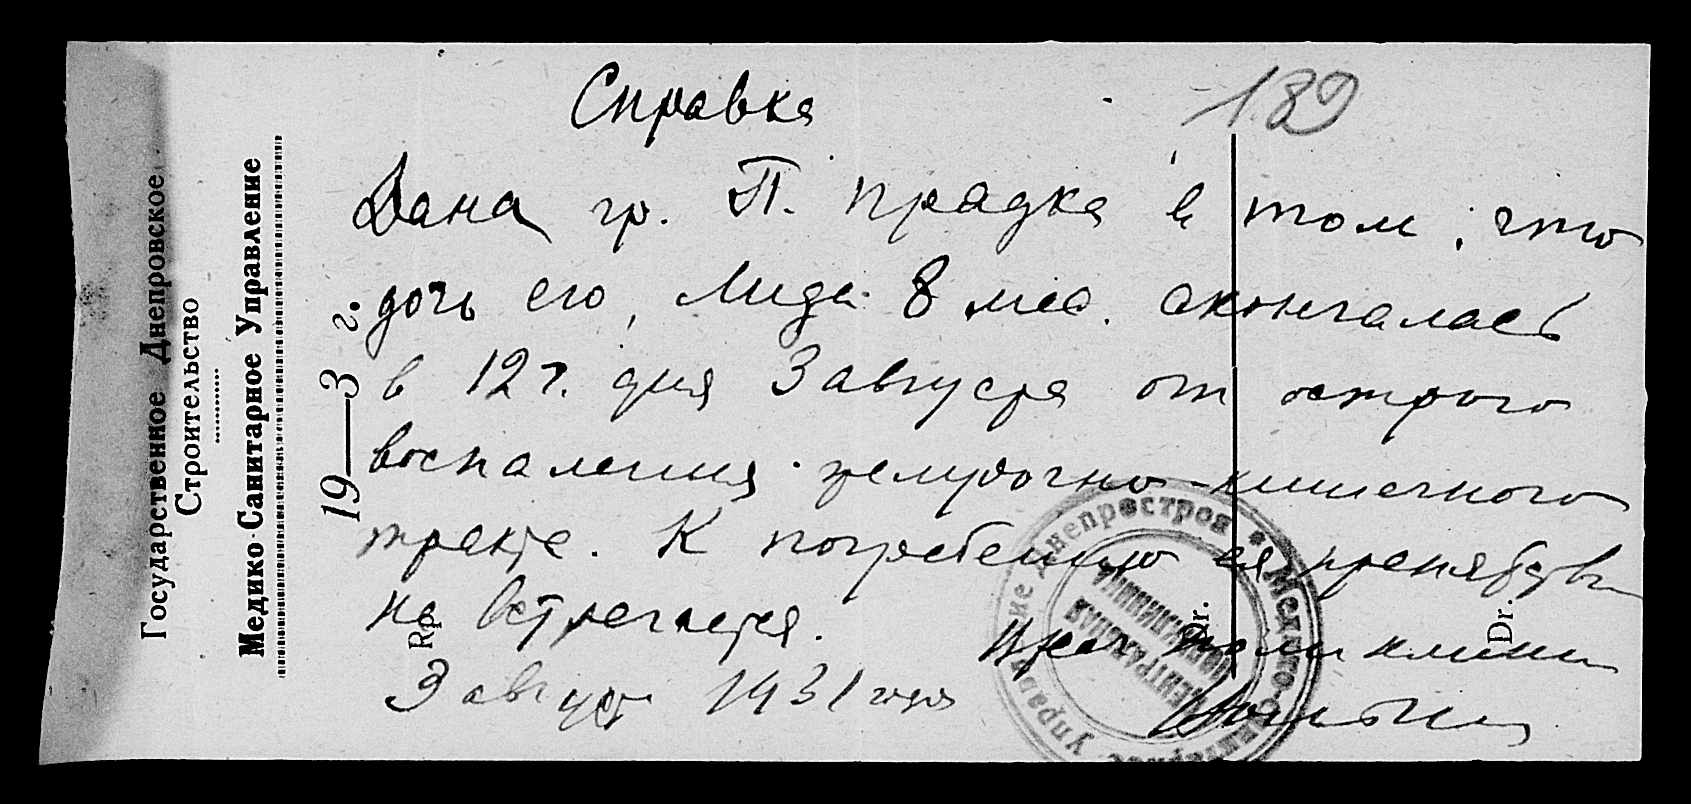 Государственное Днепровское
Строительство
Медико-Санитарное Управление
19—3 г.
182
Справка
Дана гр. П. Прядка в том, что
дочь его, Лида 8 мес. скончалась
в 12 ч. дня 3 августа от острого
воспаления желудочно-кишечного
тракта. К погребению ея препятствий
не встречается.
Rp.
Dr.
Dr.
Врач Поликлиники
3 август 1931 года
Медико-Санитарное Управление Днепростроя
ЦЕНТРАЛЬНАЯ
ПОЛИКЛИНИКА